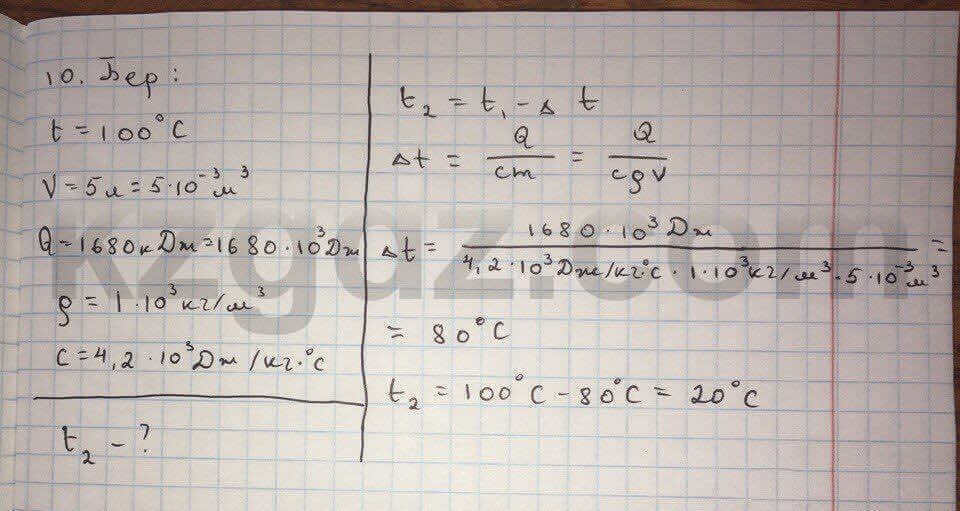 10. Бер:
t = 100°C
V = 5л = 5·10⁻³м³
Q = 1680кДж = 1680·10³Дж
ρ = 1·10³кг/м³
C = 4,2·10³Дж/кг·°C
t₂ - ?
t₂ = t₁ - Δt
Δt = Q/cm = Q/cρV
Δt = 1680·10³Дж / 4,2·10³Дж/кг·°C · 1·10³кг/м³·5·10⁻³м³ =
= 80°C
t₂ = 100°C - 80°C = 20°C
kzgdz.com